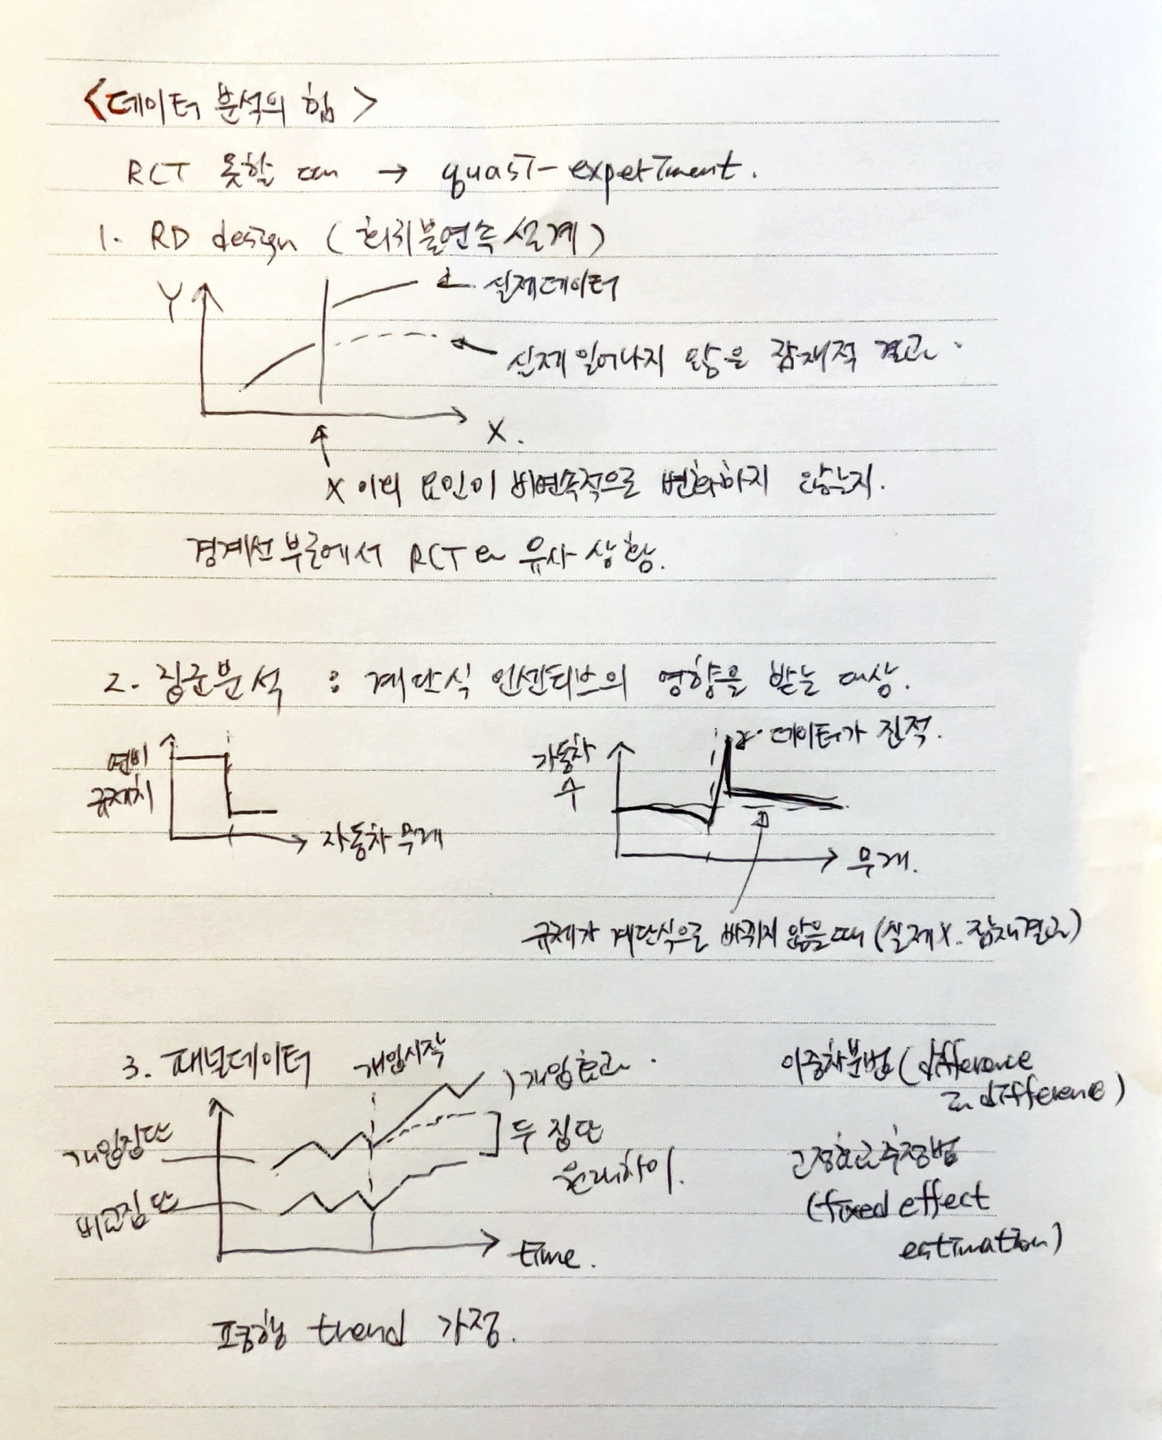 <데이터 분석의 힘>
RCT 못할 때 → quasi-experiment.
1. RD design (회귀불연속 설계)
Y
실제데이터
실제 일어나지 않은 잠재적 결과.
X.
X 이외 요인이 비연속적으로 변화하지 않는지.
경계선 부근에서 RCT와 유사 상황.
2. 집군분석 : 계단식 인센티브의 영향을 받는 대상.
연비
규제치
자동차 무게
자동차
수
데이터가 집적.
무게.
규제가 계단식으로 바뀌지 않을 때 (실제X. 잠재결과)
3. 패널데이터
개입시작
개입효과.
개입집단
비교집단
두 집단
원래차이.
time.
이중차분법 (difference
in difference)
고정효과추정법
(fixed effect
estimation)
평행 trend 가정.